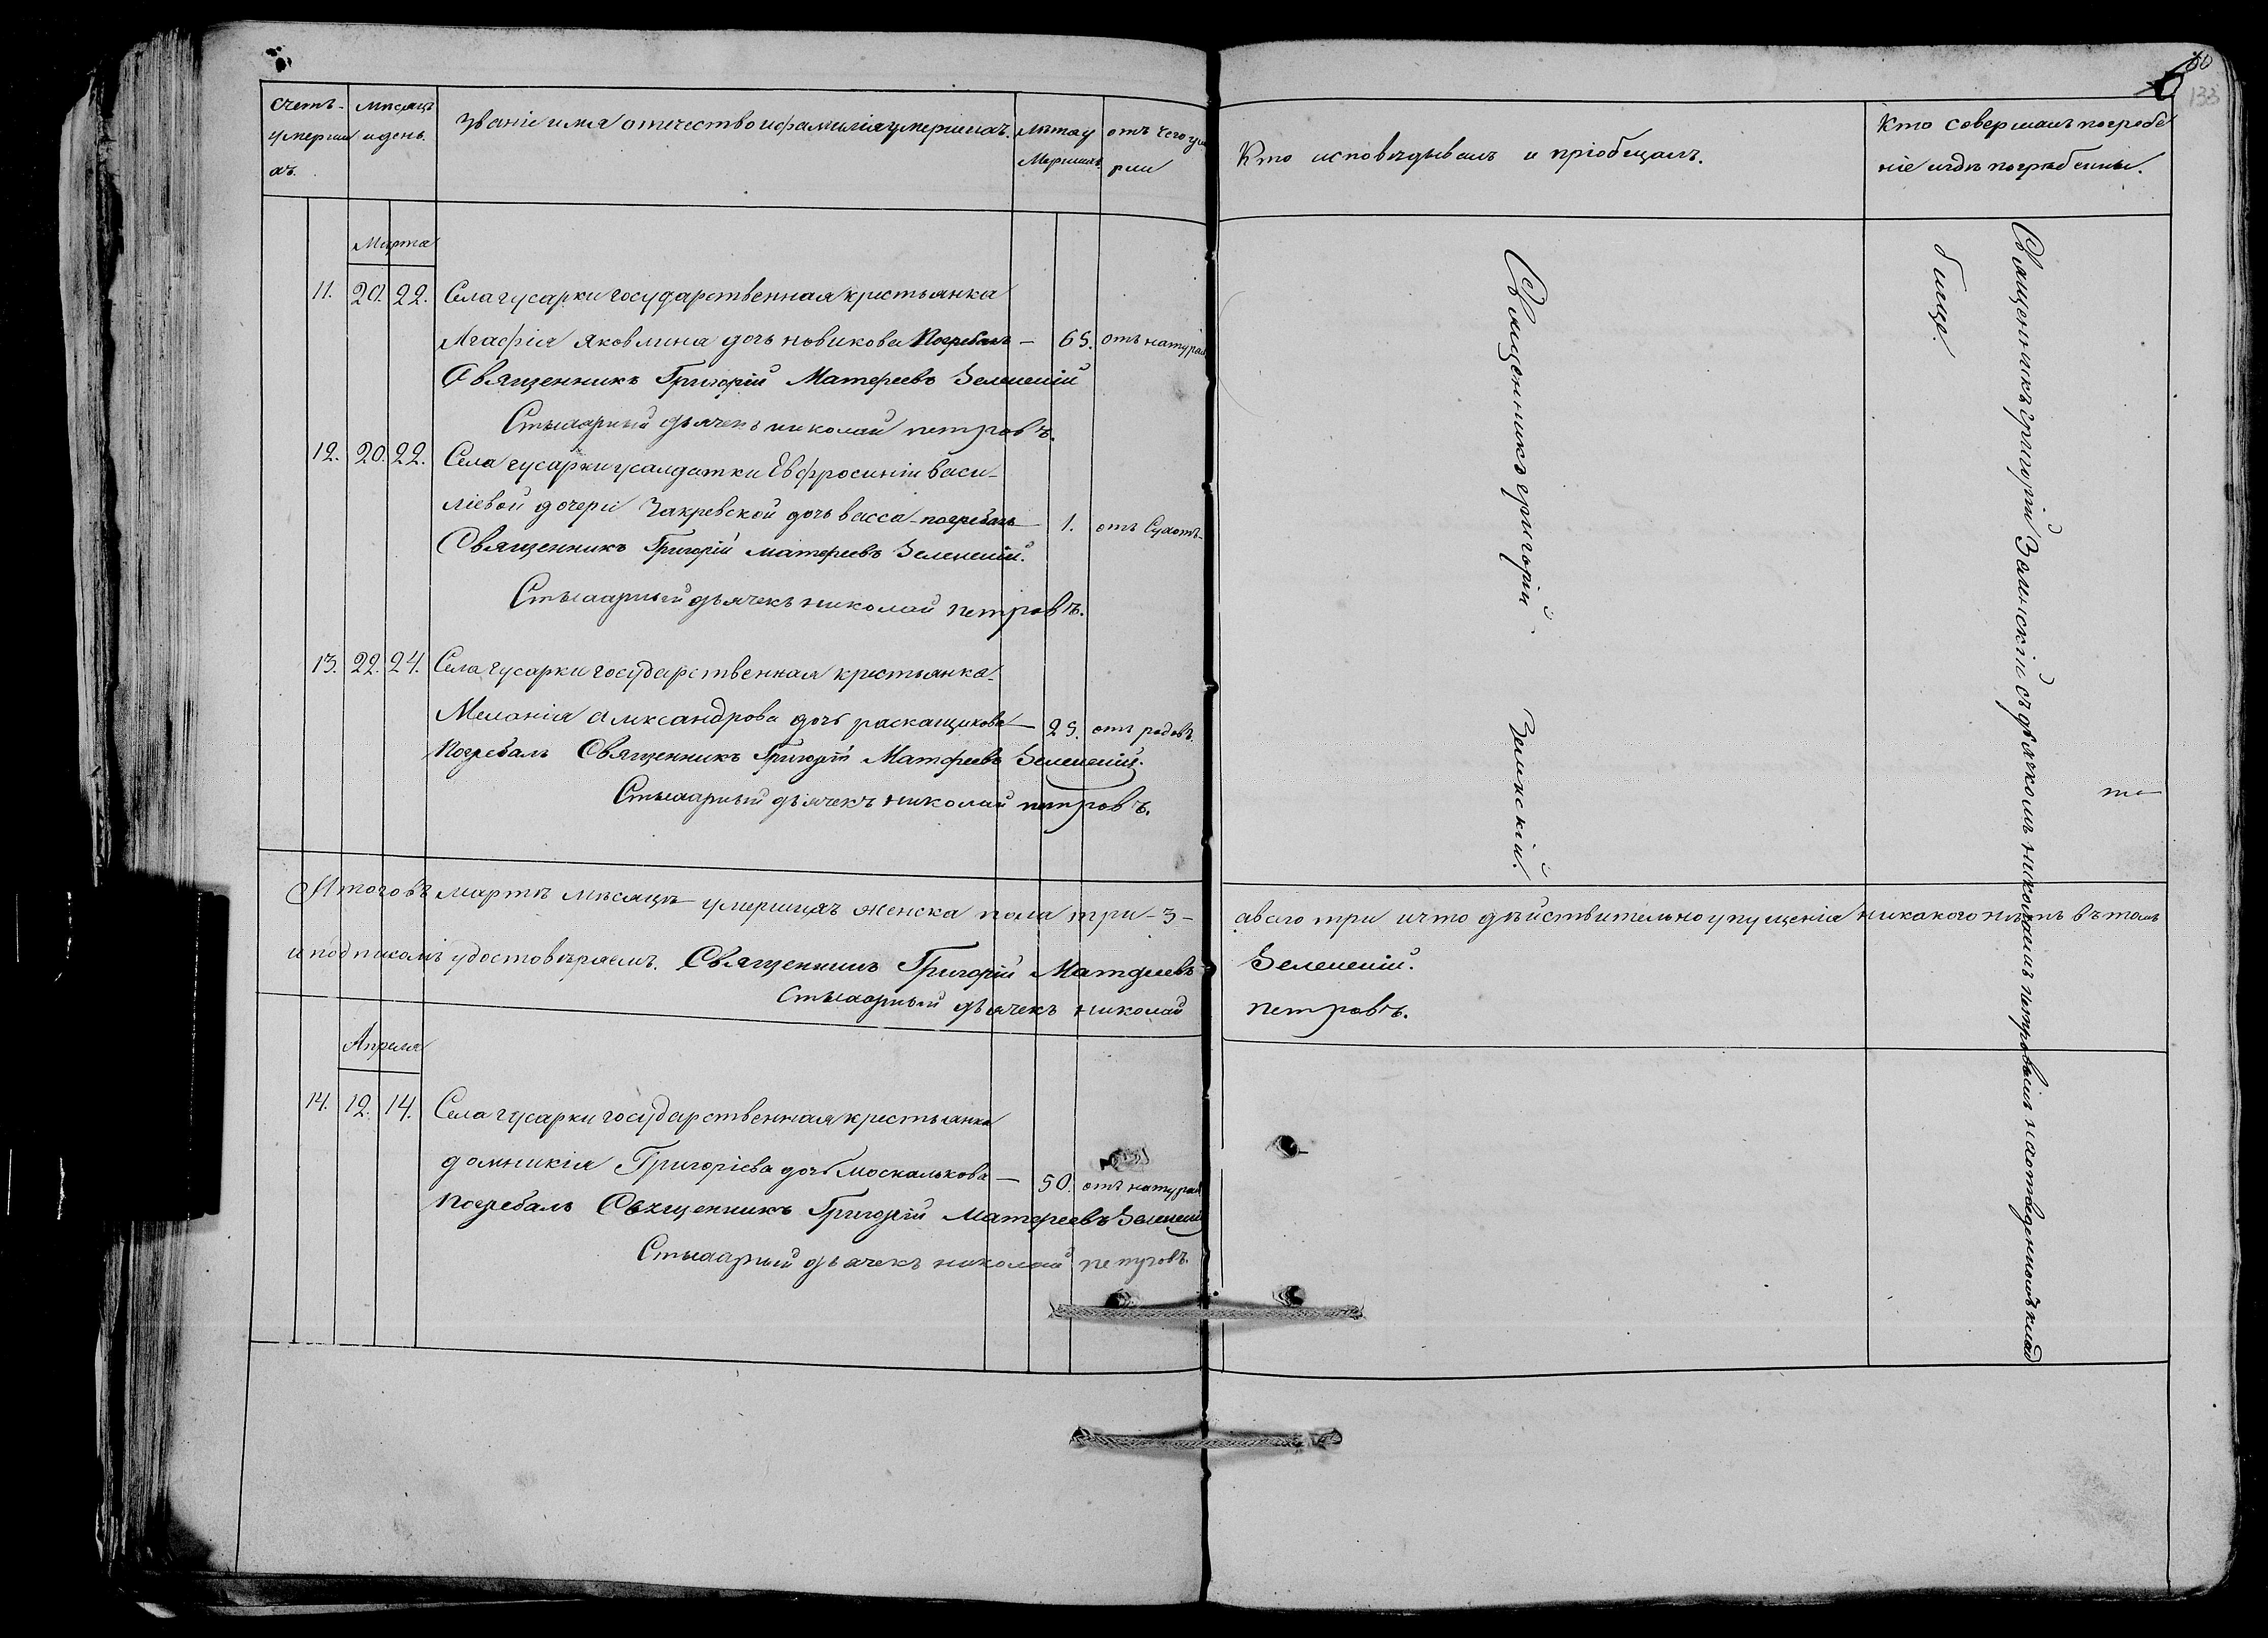 60
133
Счетъ
умерши
хъ.
Мѣсяцъ
и день.
Званіе имя отчество и фамилія умершихъ.
Лѣта у
мершихъ
отъ чего ум
рли
Кто исповѣдывалъ и пріобщалъ.
Кто совершалъ погребе
ніе и гдѣ погребенны.
Марта
11. 20. 22. Села гусарки государственная крестьянка
Агафія Яковлина дочь новикова Погребалъ — 65. отъ натурал
Священникъ Григорій Матфеевъ Зеленскій
Стихарный дьячекъ николай петровъ.
12. 20. 22. Села гусарки усалдатки Евфросиніи васи-
ліевой дочери Закревской дочь васса погребалъ — 1. отъ Сухотъ
Священникъ Григорій матфеевъ Зеленскій.
Стихарный дьячекъ николай петровъ.
13. 22. 24. Села гусарки государственная крестьянка
Меланія Александрова дочь раскащикова — 25. отъ родовъ.
Погребалъ Священникъ Григорій Матфеевъ Зеленскій.
Стихарный дьячекъ николай петровъ.
Священникъ григорій Зеленскій.
Священникъ григорій Зеленскій съ дьячкомъ николаемъ петровымъ на отведенномъ клад
бище.
Итого въ мартѣ мѣсяцѣ умершихъ женска пола три -3- авсего три ичто дѣйствительно упущенія никакого нѣтъ въ томъ
и подписомъ удостовѣряемъ. Священникъ Григорій Матфеевъ Зеленскій.
Стихарный дьячекъ николай петровъ.
Апреля
14. 12. 14. Села гусарки государственная крестьянка
домникія Григоріева дочь москалькова — 50. отъ натурал
Погребалъ Священникъ Григорій Матфеевъ Зеленскій
Стихарный дьячекъ николай петровъ.